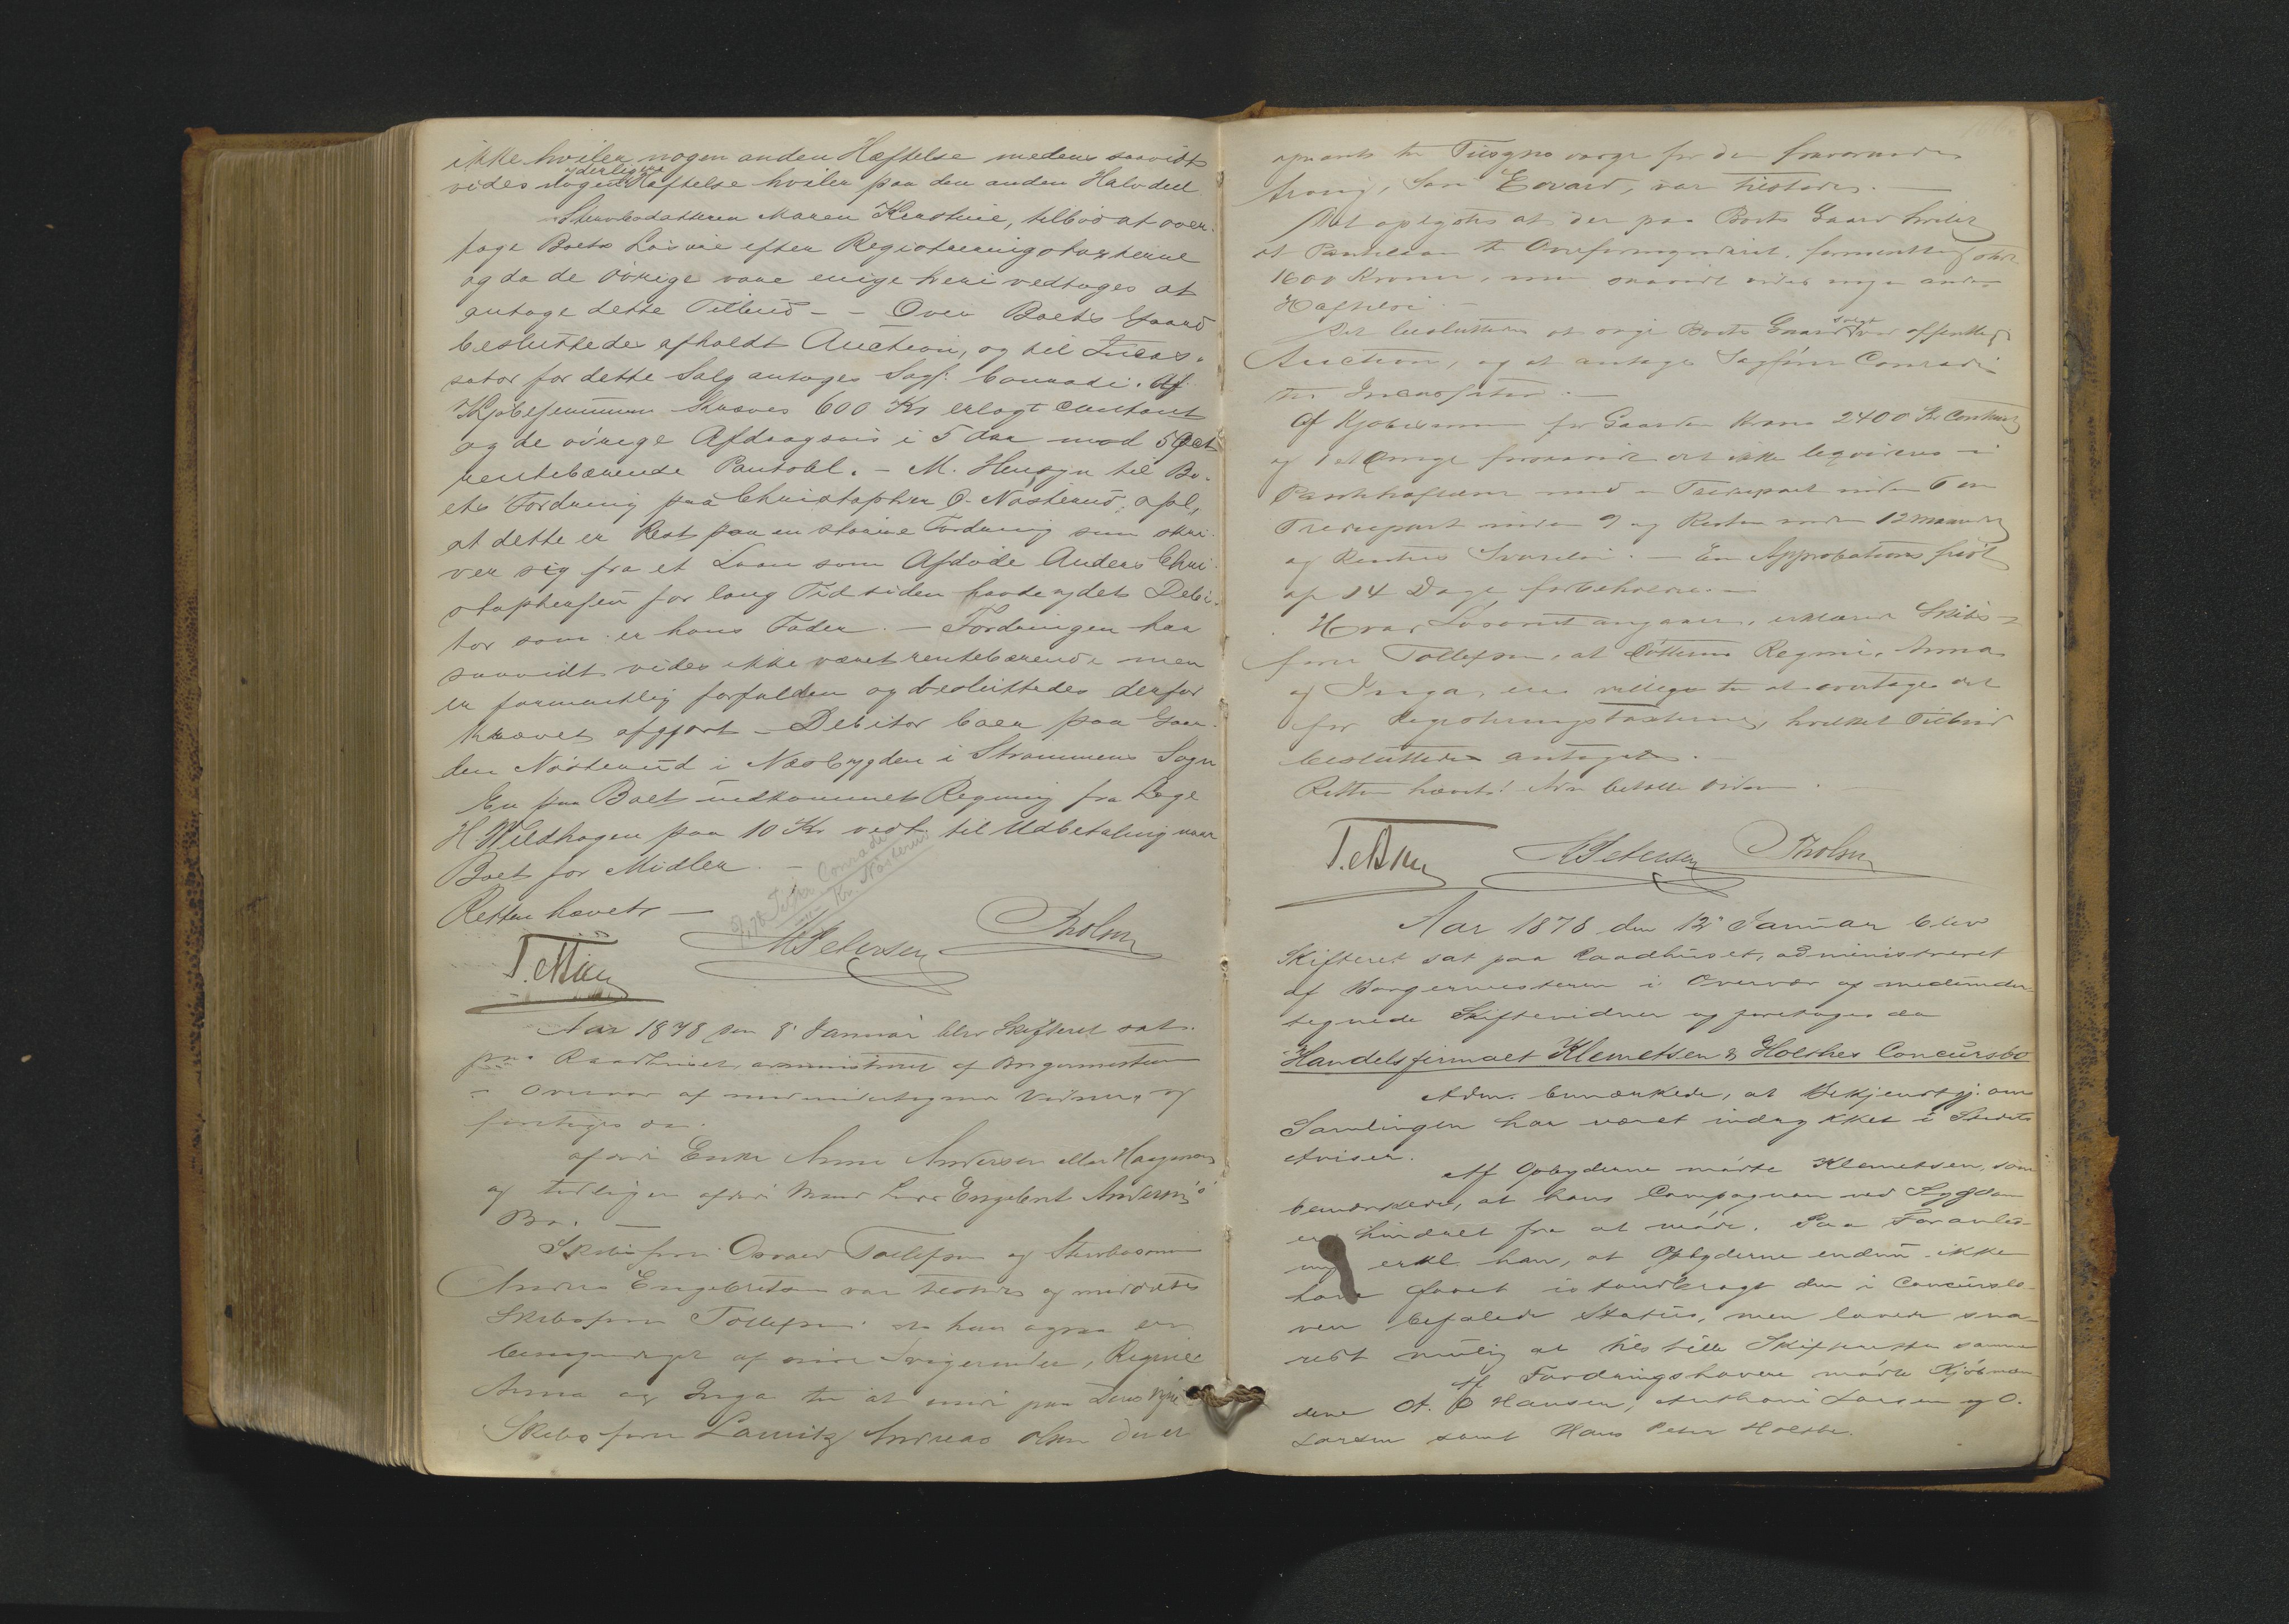 ikke hviler nogen anden Hæftelse medens saavidt
yderligere
vides nogen Hæftelse hviler paa den anden Halvdeel
Stervbodatteren Maren Kirstine, tilbød at over-
tage Boets Løsøre efter Registreringstaxterne
og da de øvrige vare enige heri vedtoges at
antage dette Tilbud - - Over Boets Gaard
besluttedes afholdt Auction, og til Incas-
sator for dette Salg antoges Sagf. Conradi. Af
Kjøbesummen kræves 600 Kr erlagt contant
og de øvrige Afdragsvis i 5 Aar mod 5 pCt
rentebærende Pantobl. - M. Hensyn til Bo-
ets Fordring paa Christopher O. Nøsterud, opl.
at dette er Rest paa en større Fordring som skri-
ver sig fra et Laan som Afdøde Anders Chri-
stophersen for lang Tid siden havde ydet Debi-
tor som er hans Fader. - Fordringen har
saavidt vides ikke været rentebærende men
er formentlig forfalden og besluttedes derfor
krævet afgjort - Debitor boer paa Gaar-
den Nøsterud i Næsbygden i Strømmens Sogn
En paa Boet indkommet Regning fra Læge
H Wildhagen paa 10 Kr vedt. til Udbetaling naar
Boet for Midler. -
Retten hævet -
Conradi
Kr. Nøsterud
M Petersen Tholm
Aar 1878 den 8' Januar blev Skifteret sat
paa Raadhuset, administreret af Borgermesteren
i Overvær af medundertegnede Vidner, og
foretoges da:
afdøde Enke Anne Andersen eller Haagensens
og tidligere afdøde Mand Engebret Andersens
Bo. -
Skibsfører Osvald Tollefsen og Stervbosønnen
Andreas Engebretsen var tilstede og mødte
Skibsfører Tollefsen som han ogsaa er
bemyndiget af sine Svigerinder, Regine
Anna og Inga til at møde paa Deres Vegne
Skibsfører Lauritz Andreas Olsen der er
opnævnt til Tilsynsværge for den fraværende
Arving, Søn Edvard, var tilstede. -
Det oplystes at der paa Boets Gaard hviler
et Pantelaan til Overformynderiet, formentlig stort
1600 Kroner, men saavidt vides ingen anden
Hæftelse. -
solgt
Det besluttedes at søge Boets Gaard ved offentlig
Auction, og at antage Sagfører Conradi
til Incassator. -
Af Kjøbesummen for Gaarden kræves 2400 Kr Contant
og det Øvrige forsaavidt det ikke liqvideres i
Pantehæftelser med en Trediepart inden 6 en
Trediepart inden 9 og Resten inden 12 Maaneder
og Renters Svarelse. - En Approbationsfrist
af 14 Dage forbeholdes. -
Hvad Løsøret angaaer, erklærer Skibs-
fører Tollefsen, at Døttrene Regine, Anna
og Inga, ere villige til at overtage det
for Registreringstaxterne, hvilket Tilbud
besluttedes antaget. -
Retten hævet! Adm betalte Vidnerne.
M Petersen Tholm
Aar 1878 den 12' Januar blev
Skifteret sat paa Raadhuset, administreret
af Borgermesteren i Overvær af medunder-
tegnede Skiftevidner og foretoges da
Handelsfirmaet Klemetsen & Holthes Concursbo
Adm. bemærkede, at Bekjendtgj. om
Samlingen har været indrykket i Stedets
Aviser.
Af Opbyderne mødte Klemetsen, som
bemærkede, at hans Compagnon ved Sygdom
er hindret fra at møde. Paa Foranled-
ning erkl. han, at Opbyderne endnu ikke
have faaet istandbragt den i Concurslo-
ven befalede Status, men lovede sna-
rest mulig at tilstille Skifteretten samme
Af Fordringshavere mødte Kjøbmæn-
dene A. O Hansen, Anthoni Larsen og O.
Larsen samt Hans Peter Holthe.